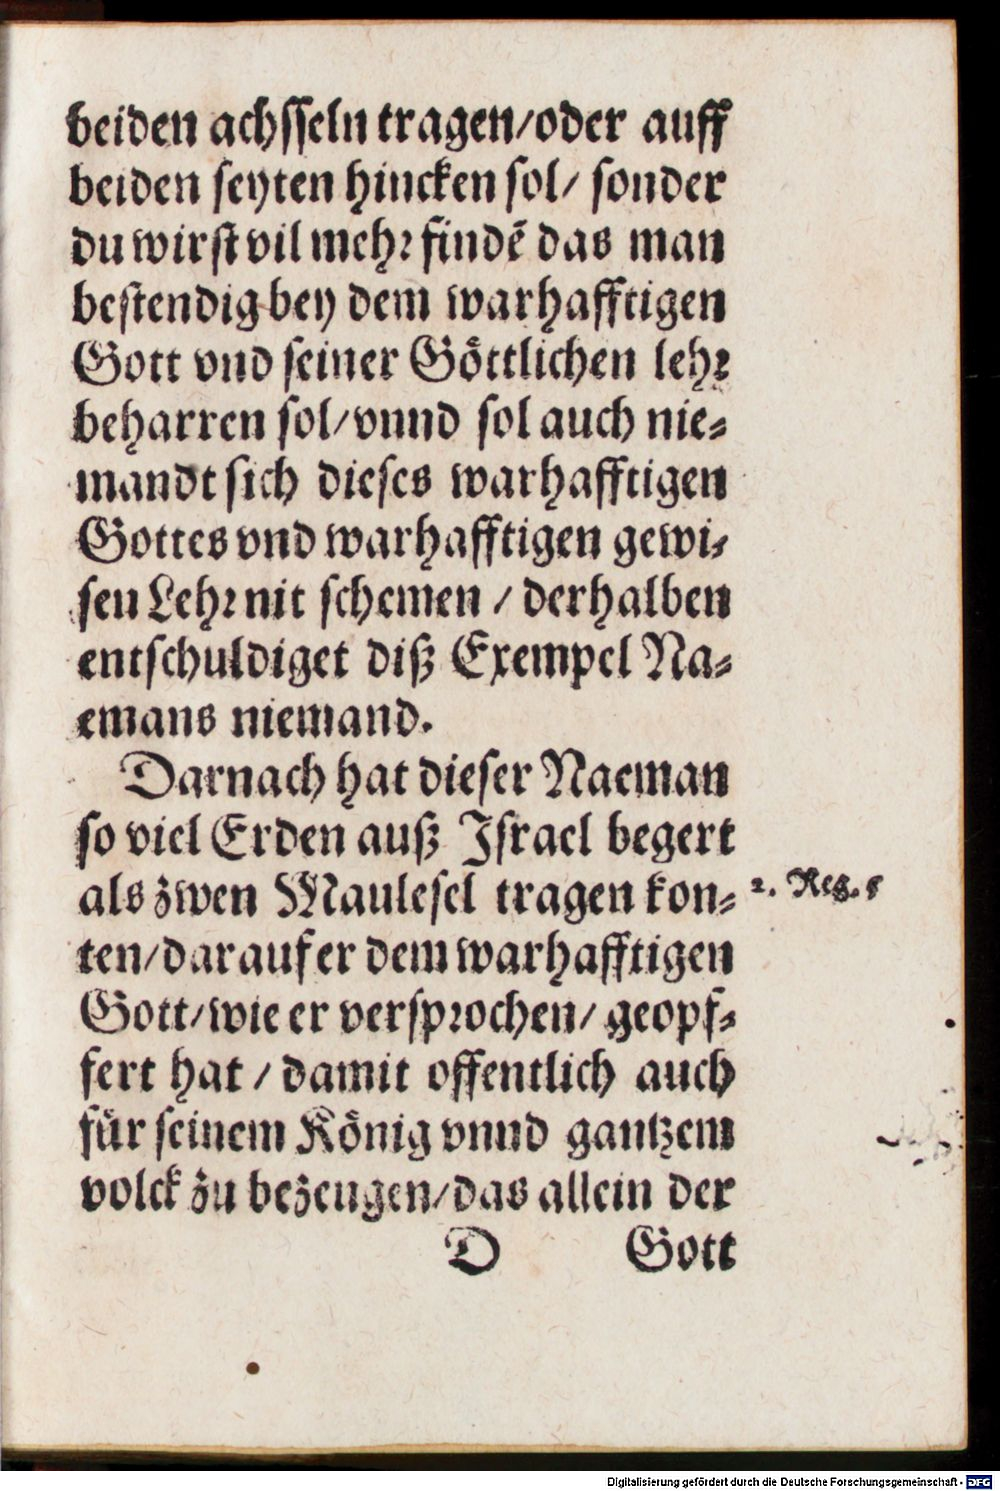 beiden achſſeln tragen/oder auff
beiden ſeyten hincken ſol/ ſonder
du wirſt vil mehr findẽ das man
beſtendig bey dem warhafftigen
Gott vnd ſeiner Göttlichen lehr
beharren ſol/vnnd ſol auch nie⸗
mandt ſich dieſes warhafftigen
Gottes vnd warhafftigen gewi⸗
ſen Lehr nit ſchemen / derhalben
entſchuldiget diß Exempel Na⸗
emans niemand.
Darnach hat dieſer Naeman
ſo viel Erden auß Iſrael begert
als zwen Mauleſel tragen kon⸗
2. Reg. 5
ten/darauf er dem warhafftigen
Gott/wie er verſprochen/ geopf⸗
fert hat / damit offentlich auch
für ſeinem König vnnd gantzem
volck zu bezeugen/das allein der
D Gott
Digitalisierung gefördert durch die Deutsche Forschungsgemeinschaft - DFG